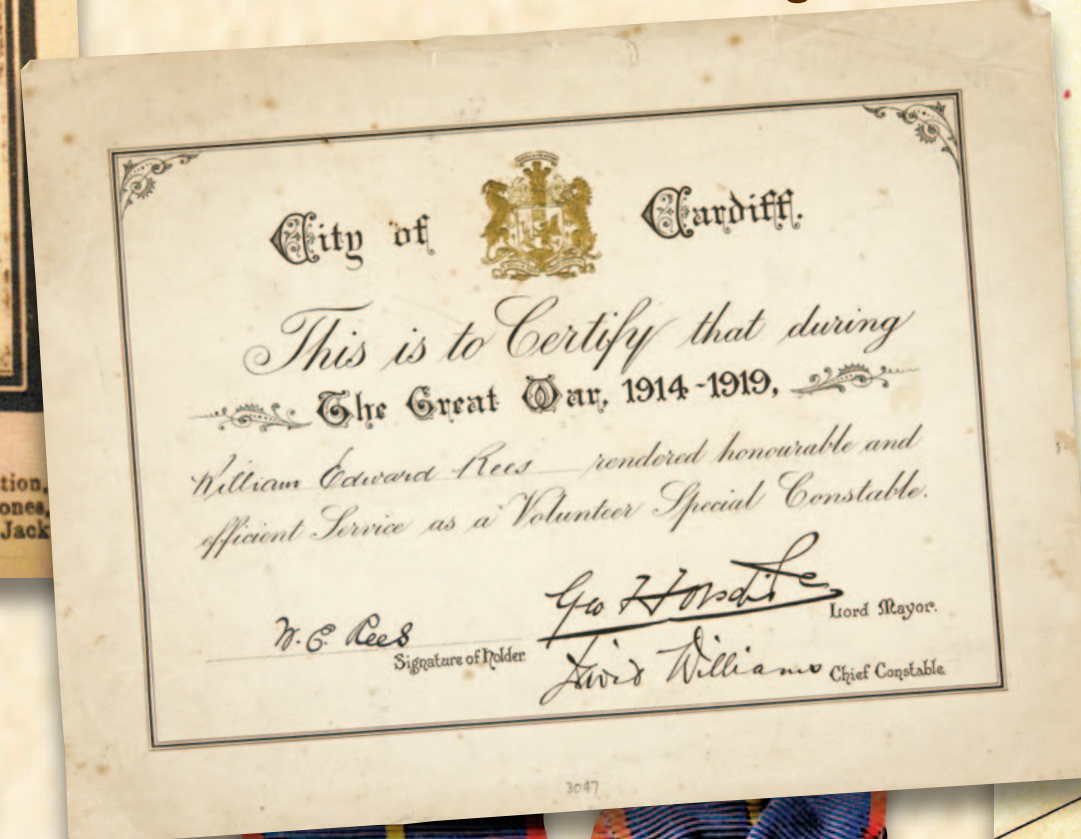 tion,
ones,
Jack
City of Cardiff.
This is to Certify that during
The Great War, 1914-1919,
William Edward Rees rendered honourable and
efficient Service as a Volunteer Special Constable.
Geo F Forsdike
Lord Mayor.
W. E. Rees
Signature of Holder
David Williams Chief Constable.
3047